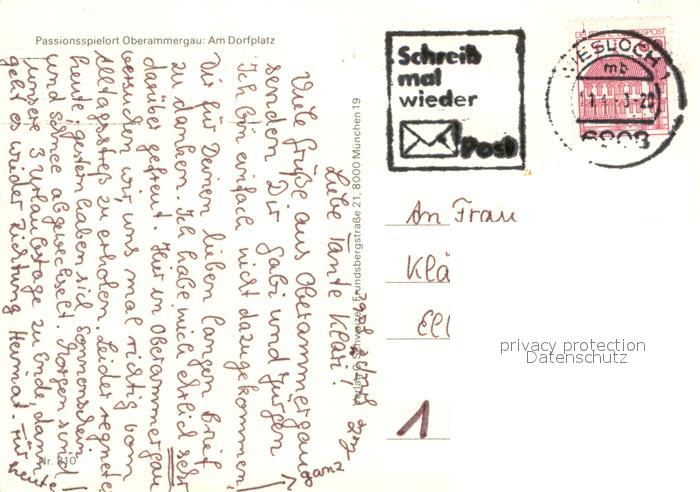 Passionsspielort Oberammergau: Am Dorfplatz
Liebe Tante Klari!
Viele Grüße aus Oberammergau
senden Dir Gabi und Jürgen
Ich bin einfach nicht dazugekommen,
Dir für Deinen lieben langen Brief
zu danken. Ich habe mich ehrlich sehr
darüber gefreut. Hier in Oberammergau
versuchen wir, uns mal richtig vom
Alltagsstreß zu erholen. Leider regnete
heute; gestern haben sich Sonnenschein
und Schnee abgewechselt. Morgen sind
unsere 3 Urlaubstage zu Ende, dann
geht es wieder Richtung Heimat. Für heute
ganz liebe
Nr. 810
Verlag Schweizer, Frundsbergstraße 21, 8000 München 19
Schreib
mal
wieder
Post
DEUTSCHE BUNDESPOST
WIESLOCH 1
mb
6908
An Frau
Klä
Ell
1
privacy protection
Datenschutz